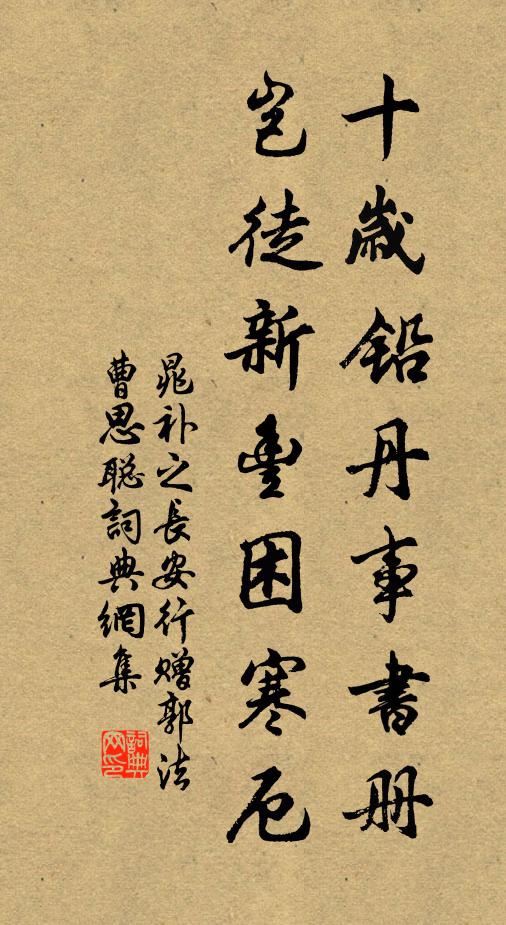 十歲鉛丹事書册
豈徒新豐困寒厄
晁补之長安行赠郭法
曹思聪詞典網集
詞典网印